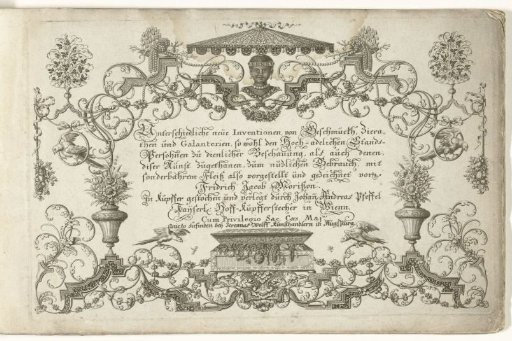 Unterschiedliche neüe Inventionen von Geschmückh, Ziera,
then und Galanterien, so wohl den Hoch-adelichen Stands-
Persohnen zu dienlicher Beschauung, als auch denen
diser Künst zugethanen, zum nüdlichen Gebrauch, mit
sonderbahren Fleiß also vorgestellt und gezeichnet von
Fridrich Jacob Morisson.
In Küpffer gestochen und verlegt durch Johan Andreas Pfeffel
Kayserle Hoff-Küpfferstecher in Wienn.
Cum Privilegio Sac. Cæs. Mai.
zu finden bey Jeremias Wolff Kunsthandlern in Augspurg.